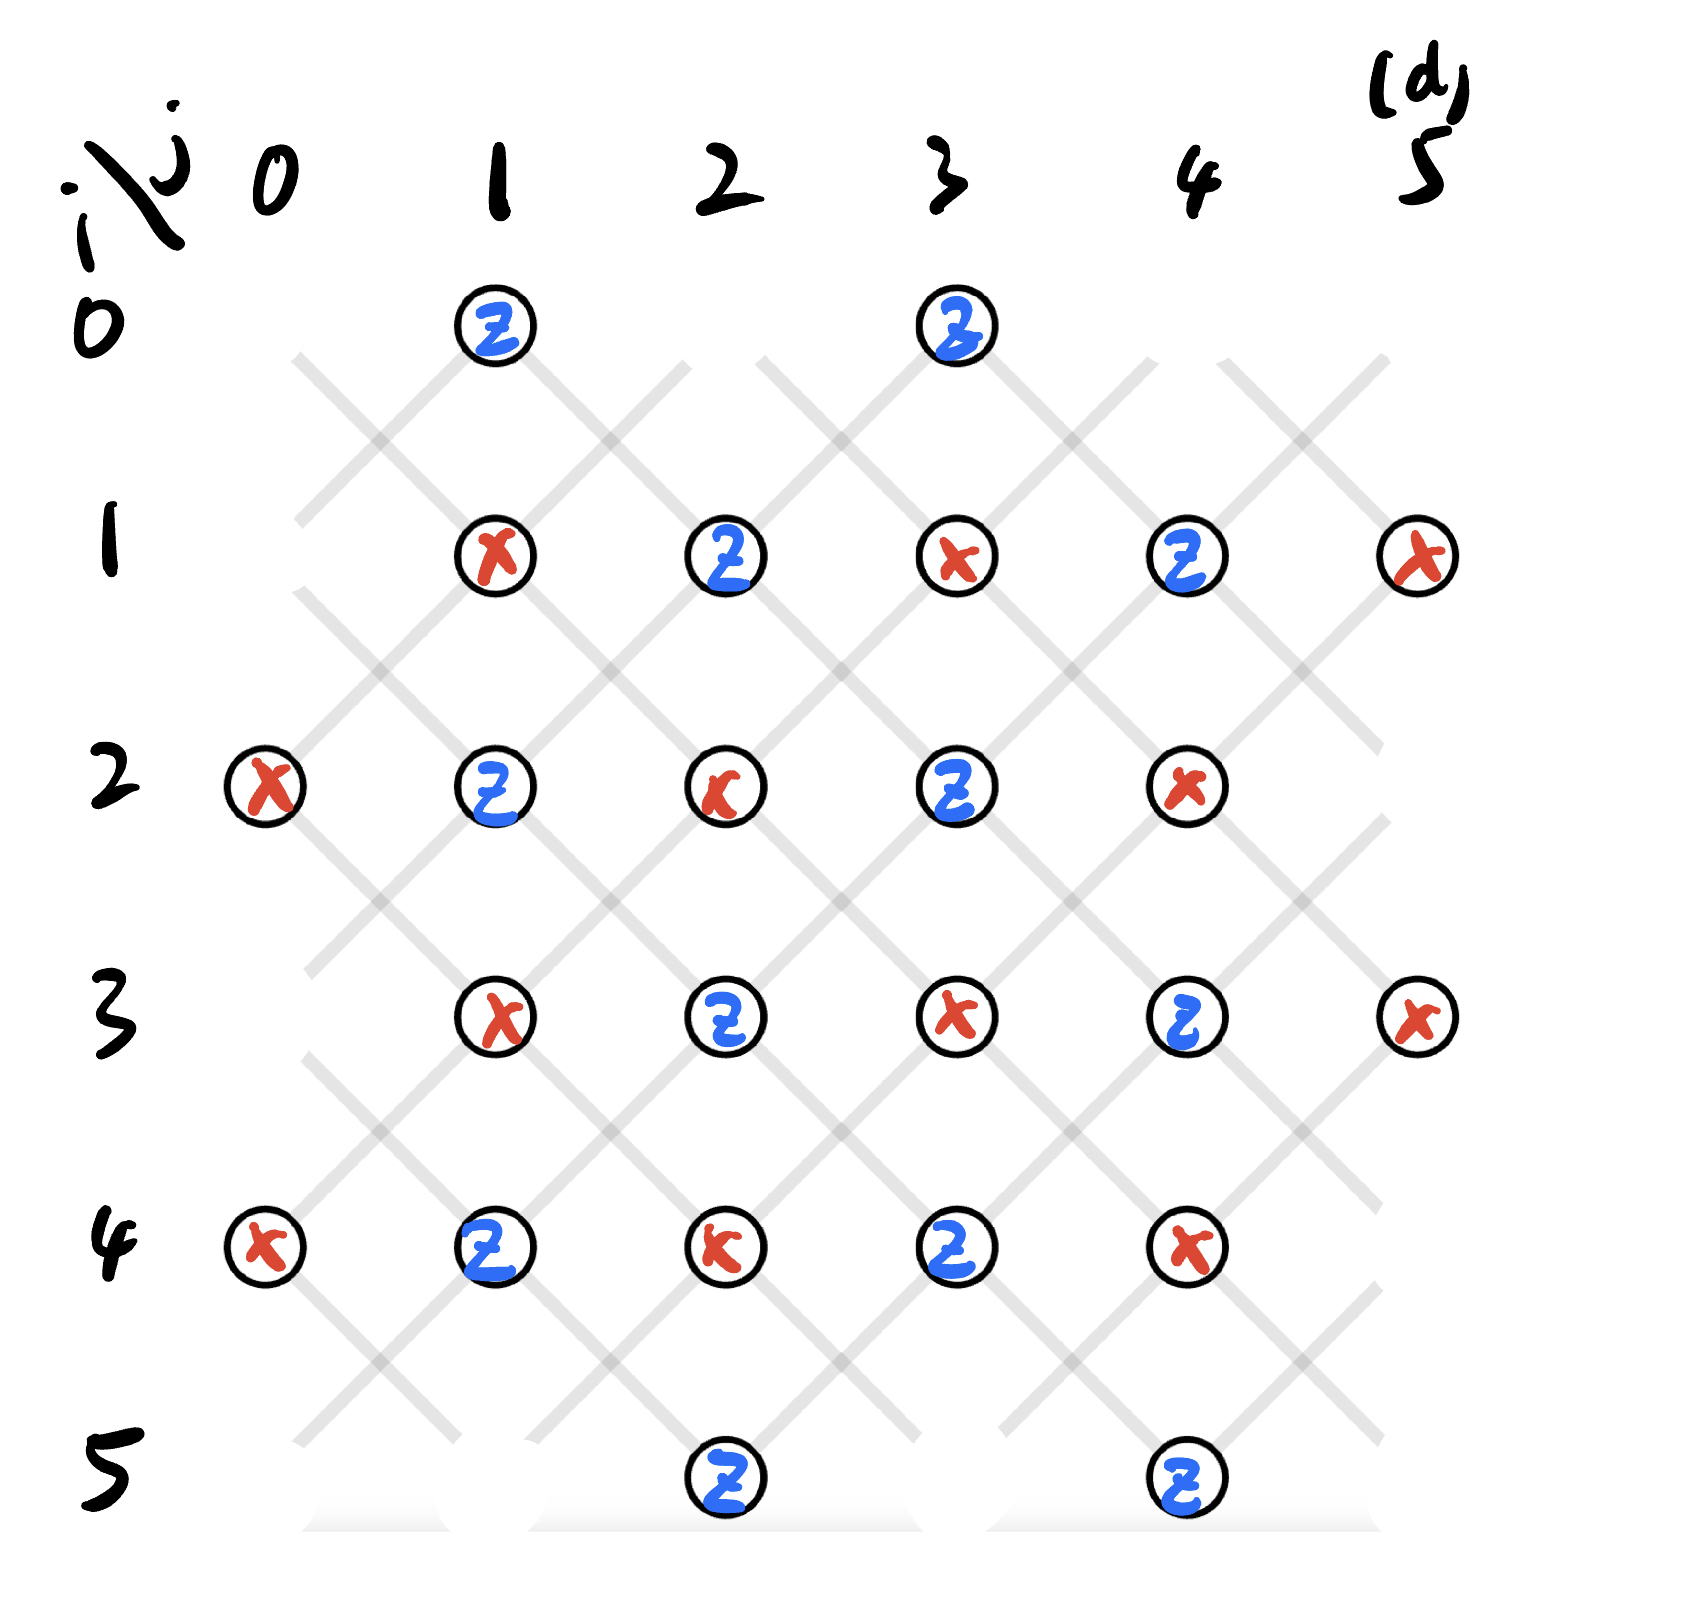 (d)
i \ j 0 1 2 3 4 5
0 Z Z
1 X Z X Z X
2 X Z X Z X
3 X Z X Z X
4 X Z X Z X
5 Z Z